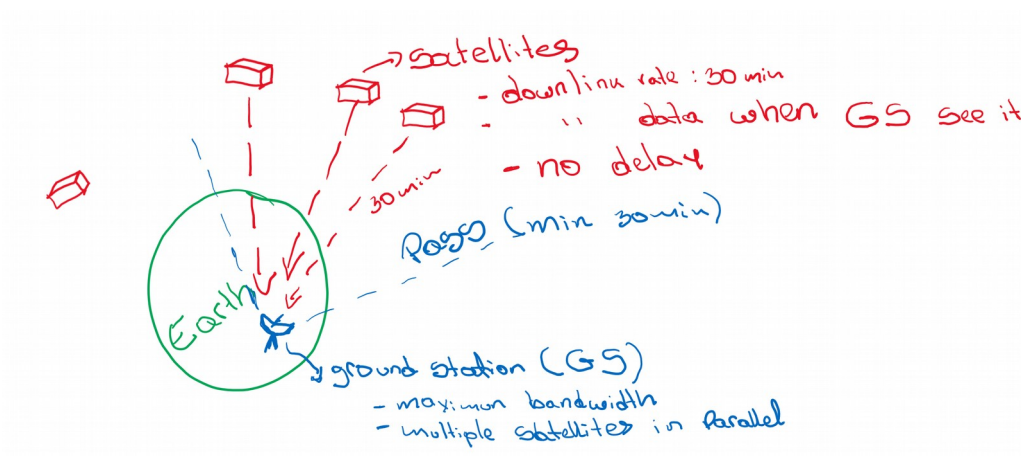 Satellites
- downlink rate : 30 min
- " data when GS see it
- no delay
30 min
Pass (min 30 min)
Earth
ground station (GS)
- maximun bandwidth
- multiple satellites in Parallel